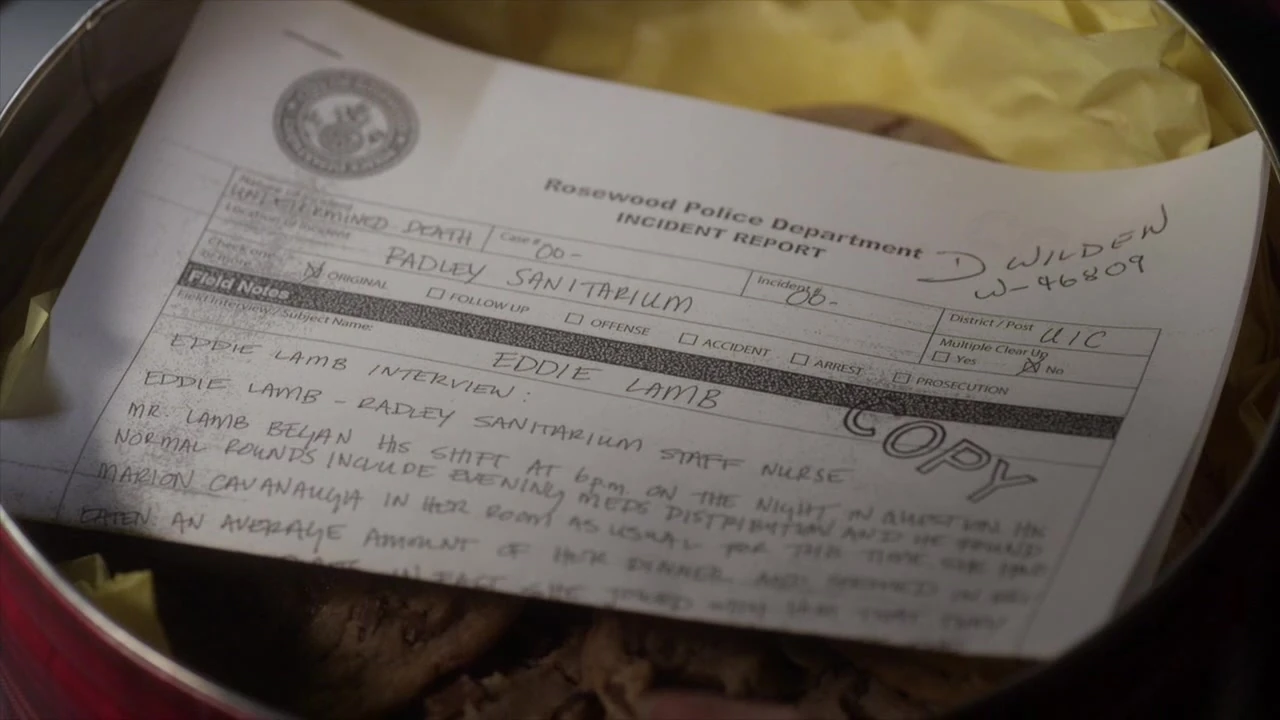 Rosewood Police Department
INCIDENT REPORT
D WILDEN
W-46809
Nature of Incident
UNDETERMINED DEATH
Case # 00-
Incident # 00-
District / Post UIC
Location of Incident
RADLEY SANITARIUM
Multiple Clear Up
Yes No
Check one or more
ORIGINAL FOLLOW UP OFFENSE ACCIDENT ARREST PROSECUTION
Field Notes
Field Interview / Subject Name:
EDDIE LAMB
COPY
EDDIE LAMB INTERVIEW:
EDDIE LAMB - RADLEY SANITARIUM STAFF NURSE
MR. LAMB BEGAN HIS SHIFT AT 6pm. ON THE NIGHT IN QUESTION. HIS
NORMAL ROUNDS INCLUDE EVENING MEDS DISTRIBUTION AND HE FOUND
MARION CAVANAUGH IN HER ROOM AS USUAL FOR THIS TIME. SHE HAD
EATEN AN AVERAGE AMOUNT OF HER DINNER AND SEEMED IN
IN FACT SHE